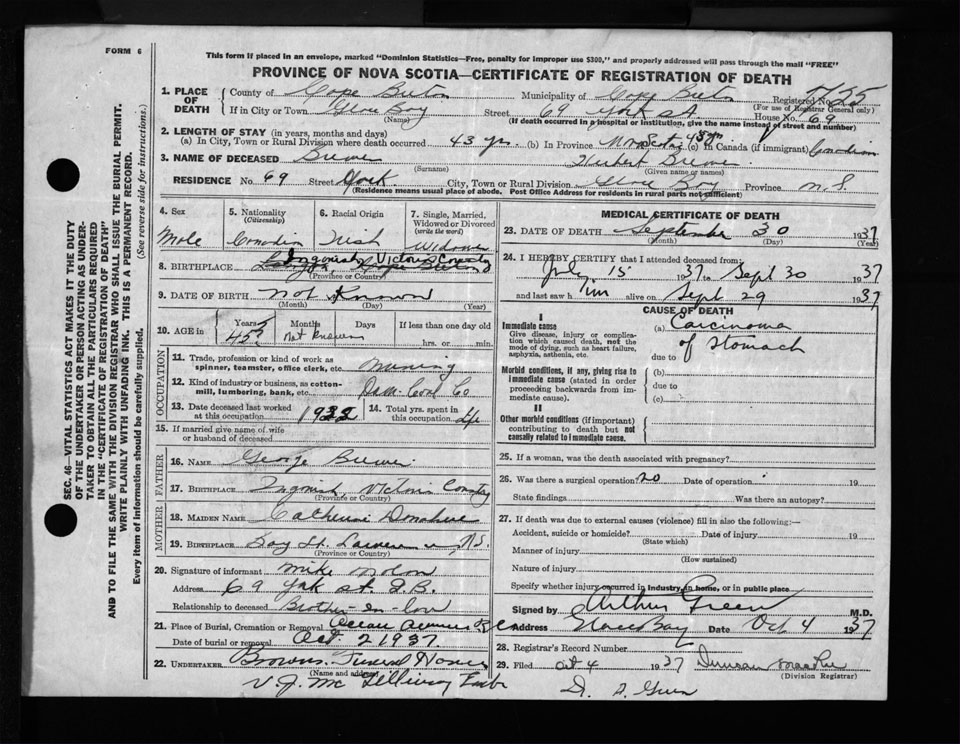 FORM 6
This form if placed in an envelope, marked "Dominion Statistics—Free, penalty for improper use $300," and properly addressed will pass through the mail "FREE"
PROVINCE OF NOVA SCOTIA—CERTIFICATE OF REGISTRATION OF DEATH
1. PLACE OF DEATH
County of Cape Breton Municipality of Cape Breton Registered No.
(For use of Registrar General only)
If in City or Town Glace Bay Street 69 York St. House No. 69
(Name) (If death occurred in a hospital or institution, give the name instead of street and number)
2. LENGTH OF STAY (in years, months and days)
(a) In City, Town or Rural Division where death occurred 43 yrs. (b) In Province (c) In Canada (if immigrant) Canadian
3. NAME OF DECEASED Brewer Herbert Brewer
(Surname) (Given name or names)
RESIDENCE No. 69 Street York City, Town or Rural Division Glace Bay Province N.S.
(Residence means usual place of abode. Post Office Address for residents in rural parts not sufficient)
4. Sex 5. Nationality (Citizenship) 6. Racial Origin 7. Single, Married, Widowed or Divorced (write the word)
Male Canadian Irish Widower
8. BIRTHPLACE Ingonish, Victoria County
(Province or Country)
9. DATE OF BIRTH Not Known
(Month) (Day) (Year)
10. AGE in Years Months Days If less than one day old
Not known hrs. or min.
OCCUPATION
11. Trade, profession or kind of work as spinner, teamster, office clerk, etc. Mining
12. Kind of industry or business, as cotton-mill, lumbering, bank, etc. Dom. Coal Co
13. Date deceased last worked at this occupation 14. Total yrs. spent in this occupation Life
15. If married give name of wife or husband of deceased
FATHER
16. NAME George Brewer
17. BIRTHPLACE Ingonish, Victoria County
(Province or Country)
MOTHER
18. MAIDEN NAME Catherine Donahue
19. BIRTHPLACE Bay St. Lawrence, N.S.
(Province or Country)
20. Signature of informant Mike
Address 69 York St. G.B.
Relationship to deceased Brother-in-law
21. Place of Burial, Cremation or Removal
Date of burial or removal Oct. 2 1937.
22. UNDERTAKER Browns Funeral Home
(Name and address)
V. J. Mc
MEDICAL CERTIFICATE OF DEATH
23. DATE OF DEATH September 30 1937
(Month) (Day) (Year)
24. I HEREBY CERTIFY that I attended deceased from:
July 15 1937 to Sept 30 1937
and last saw him alive on Sept 29 1937
CAUSE OF DEATH
I
Immediate cause
Give disease, injury or complication which caused death, not the mode of dying, such as heart failure, asphyxia, asthenia, etc.
(a) Carcinoma
of Stomach
due to
Morbid conditions, if any, giving rise to immediate cause (stated in order proceeding backwards from immediate cause).
(b)
due to
(c)
II
Other morbid conditions (if important) contributing to death but not causally related to immediate cause.
25. If a woman, was the death associated with pregnancy?
26. Was there a surgical operation? no Date of operation 19
State findings Was there an autopsy?
27. If death was due to external causes (violence) fill in also the following:—
Accident, suicide or homicide? Date of injury 19
(State which)
Manner of injury
(How sustained)
Nature of injury
Specify whether injury occurred in industry, in home, or in public place
Signed by Arthur Green M.D.
Address Glace Bay Date Oct 4 1937
28. Registrar's Record Number
29. Filed Oct 4 1937 Duncan
(Division Registrar)
SEC. 46—VITAL STATISTICS ACT MAKES IT THE DUTY
OF THE UNDERTAKER OR PERSON ACTING AS UNDER-
TAKER TO OBTAIN ALL THE PARTICULARS REQUIRED
IN THE "CERTIFICATE OF REGISTRATION OF DEATH"
AND TO FILE THE SAME WITH THE DIVISION REGISTRAR WHO SHALL ISSUE THE BURIAL PERMIT.
WRITE PLAINLY WITH UNFADING INK. THIS IS A PERMANENT RECORD.
Every item of information should be carefully supplied. (See reverse side for instructions.)